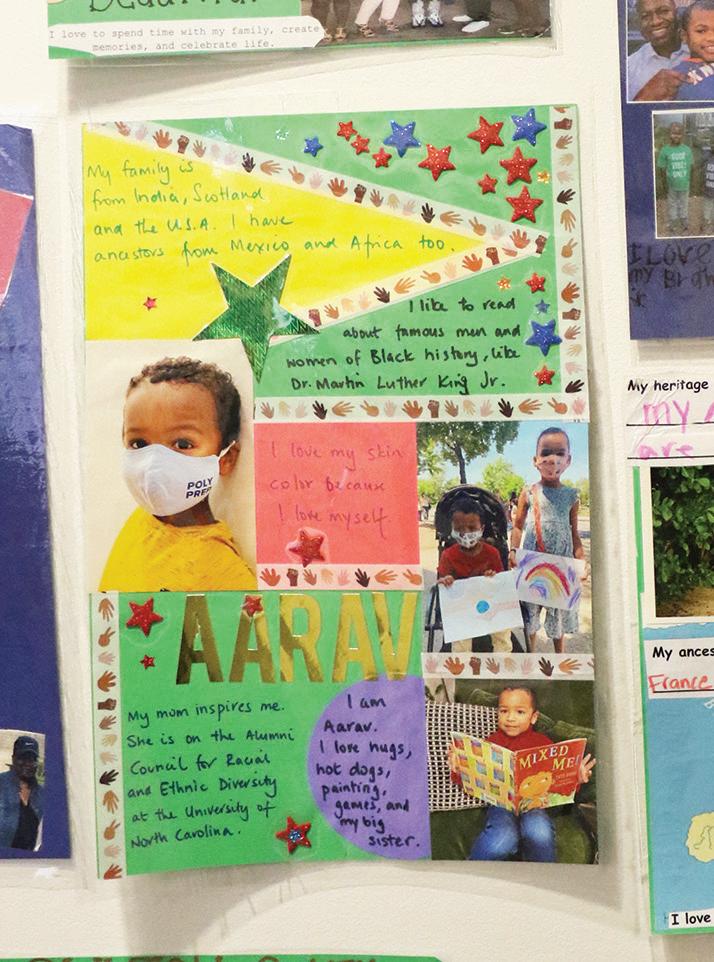 I love to spend time with my family, create
memories, and celebrate life.
My family is
from India, Scotland
and the U.S.A. I have
ancestors from Mexico and Africa too.
I like to read
about famous men and
women of Black history, like
Dr. Martin Luther King Jr.
POLY
PREP
I love my skin
color because
I love myself
AARAV
My mom inspires me.
She is on the Alumni
Council for Racial
and Ethnic Diversity
at the University of
North Carolina.
I am
Aarav.
I love hugs,
hot dogs,
painting,
games, and
my big
sister.
MIXED
ME!
GOOD
VIBES
ONLY
I LOVE
my Broth
My heritage
my
are
My ances
France
I love